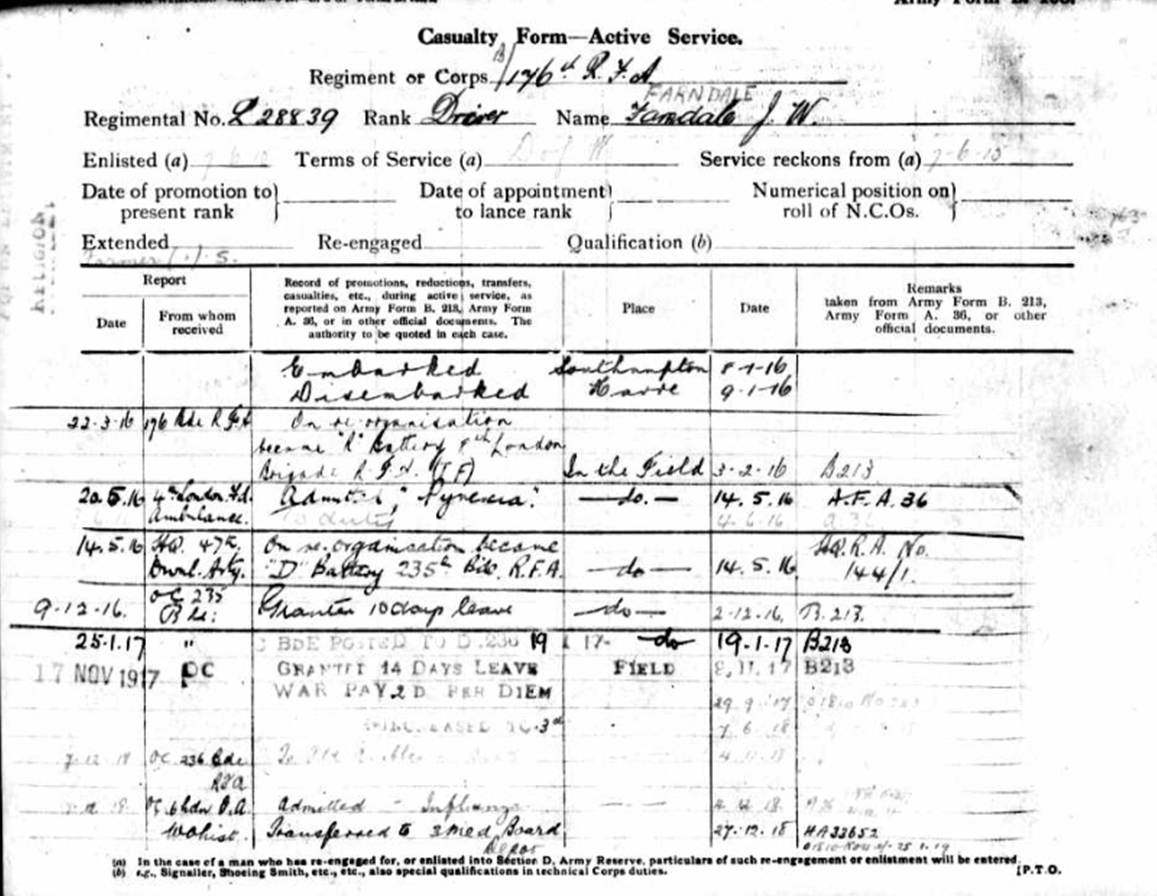 Casualty Form—Active Service.
Regiment or Corps B/176th R.F.A
FARNDALE
Regimental No. L 28839 Rank Driver Name Farndale J. W.
Enlisted (a) Terms of Service (a) D of W Service reckons from (a) 7-6-15
Date of promotion to present rank Date of appointment to lance rank Numerical position on roll of N.C.Os.
Extended Re-engaged Qualification (b)
Farmer
Report
Date From whom received
Record of promotions, reductions, transfers, casualties, etc., during active service, as reported on Army Form B. 213, Army Form A. 36, or in other official documents. The authority to be quoted in each case.
Place Date
Remarks taken from Army Form B. 213, Army Form A. 36, or other official documents.
Embarked Southampton 8-1-16
Disembarked Havre 9-1-16
22-3-16 176 Bde R.F.A On re organisation
became "R" Battery 8th London
Brigade R.F.A. (T F) In the Field 3-2-16 B213
20.5.16 4th London Fd. Admitted "Pyrexia" —do.— 14.5.16 A.F.A.36
Ambulance. To duty 4.6.16
14.5.16 HQ. 47th On re.organisation became HQ.R.A. No.
Divnl. Arty. "D" Battery 235th Bde R.F.A. —do— 14.5.16 144/1.
9-12-16. OC 235 Bde: Granted 10 days leave —do— 2-12-16. B.213.
25.1.17 " BDE POSTED TO D.236 19 1 17- do 19-1-17 B213
17 NOV 1917 OC GRANTED 14 DAYS LEAVE FIELD 8.11.17 B213
WAR PAY 2D PER DIEM
29.9.17
INCREASED TO 3d 7.6.18
7-12-18 OC 236 Bde
RFA
Admitted - Influenza 4.12.18
Transferred to 3 Med. Board 27-12-18 HA33652
Depot
(a) In the case of a man who has re-engaged for, or enlisted into Section D, Army Reserve, particulars of such re-engagement or enlistment will be entered.
(b) e.g., Signaller, Shoeing Smith, etc., etc., also special qualifications in technical Corps duties. [P.T.O.